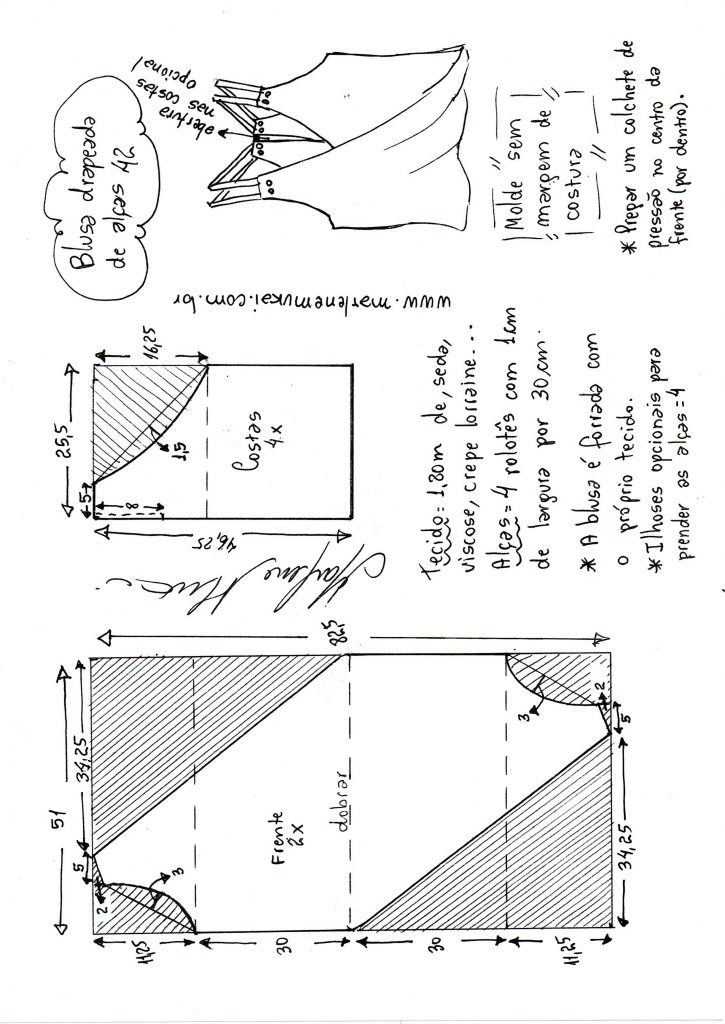 Blusa drapeada
de alças 42
abertura
nas costas
opcional
"Molde sem
margem de
costura"
* Prepar um colchete de
pressão no centro da
frente (por dentro).
www.marlenemukai.com.br
25,5
16,25
5
8
1,5
46,25
Costas
4x
Tecido = 1,80m de, seda,
viscose, crepe lorraine...
Alças = 4 rolotês com 1cm
de largura por 30cm.
* A blusa é forrada com
o próprio tecido.
* Ilhoses opcionais para
prender as alças = 4
51
34,25
5
2
3
82,5
Frente
2x
dobrar
3
2
5
34,25
11,25
30
30
11,25